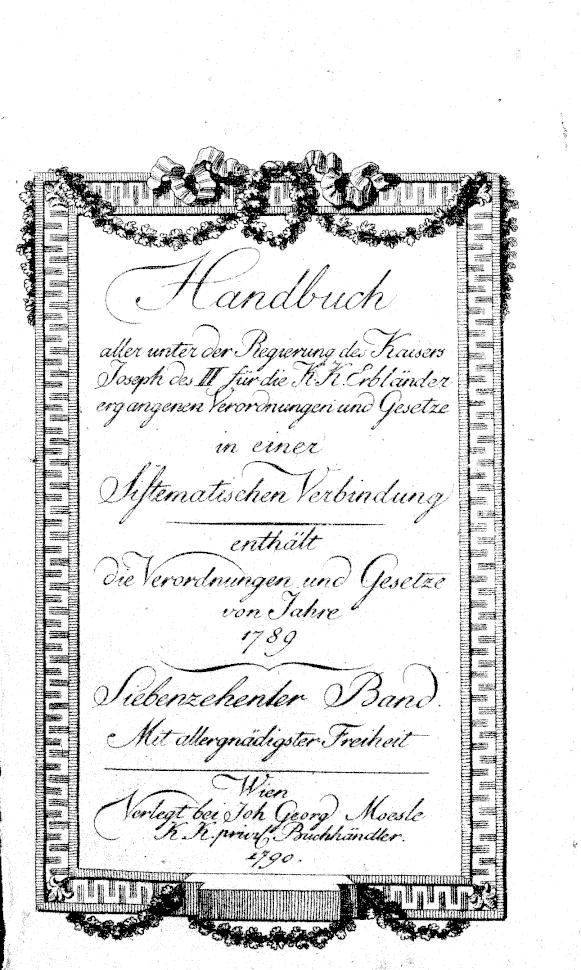 Handbuch
aller unter der Regierung des Kaisers
Joseph des II für die K.K. Erbländer
ergangenen Verordnungen und Gesetze
in einer
Sistematischen Verbindung
enthält
die Verordnungen und Gesetze
von Jahre
1789
Siebenzehenter Band.
Mit allergnädigster Freiheit
Wien
Verlegt bei Joh Georg Moesle
K.K. privil. Buchhändler.
1790.